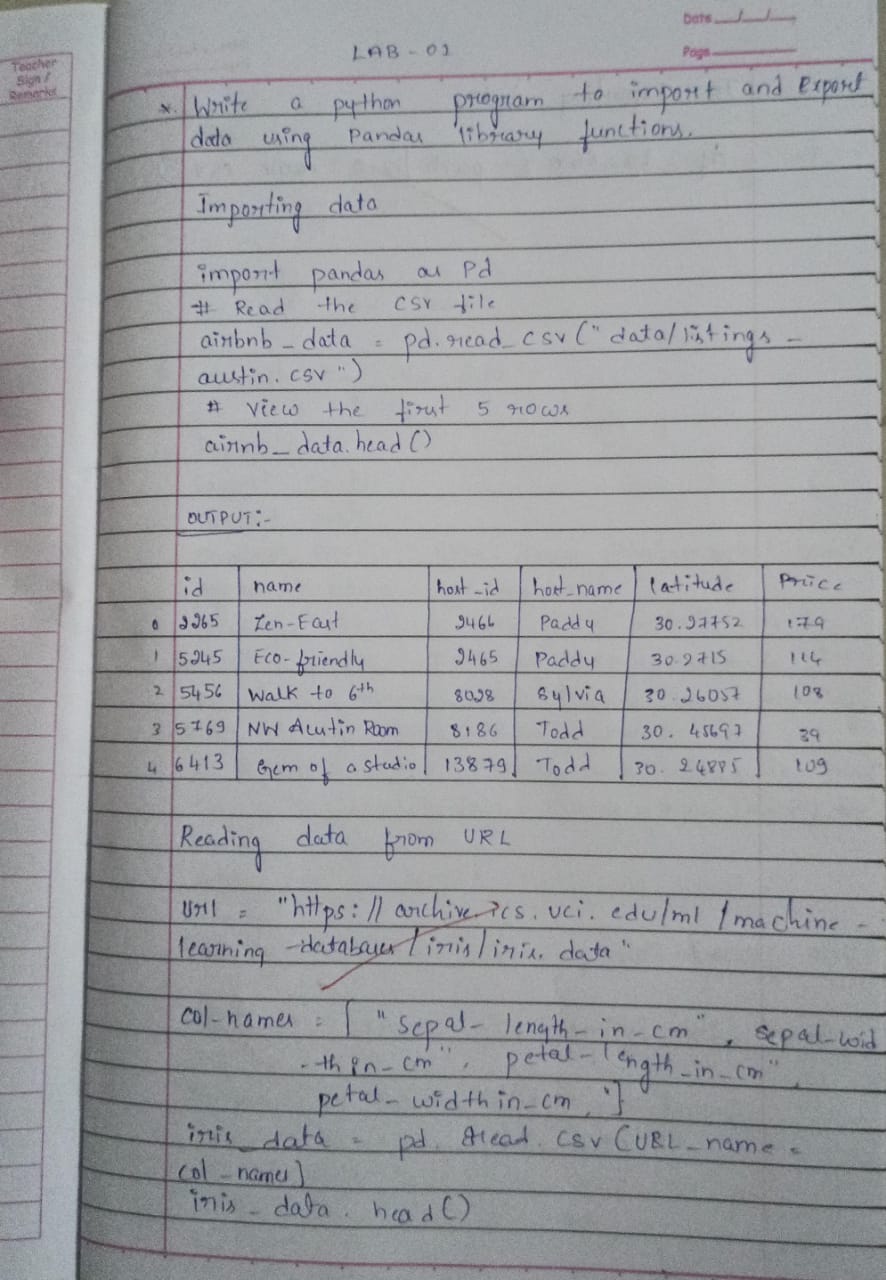 Date
Page
Teacher
Sign /
Remarks
LAB - 01
*. Write a python program to import and Export
data using Pandas library functions.
Importing data
import pandas as Pd
# Read the CSV file
airbnb_data = pd.read_csv("data/listings_
austin.csv")
# View the first 5 rows
airnb_data.head()
OUTPUT:-
id name host_id host_name latitude Price
0 2265 Zen-East 2466 Paddy 30.27752 179
1 5245 Eco-friendly 2465 Paddy 30.2715 114
2 5456 Walk to 6th 8028 Sylvia 30.26057 108
3 5769 NW Austin Room 8186 Todd 30.45697 39
4 6413 Gem of a studio 13879 Todd 30.24885 109
Reading data from URL
Url = "https://archive.ics.uci.edu/ml/machine-
learning-databases/iris/iris.data"
col-names = ["sepal-length-in-cm", sepal-wid
-th in-cm", petal-length_in_cm",
petal-width in-cm,"]
iris_data = pd.read.csv(URL_name =
col_names]
iris_data.head()